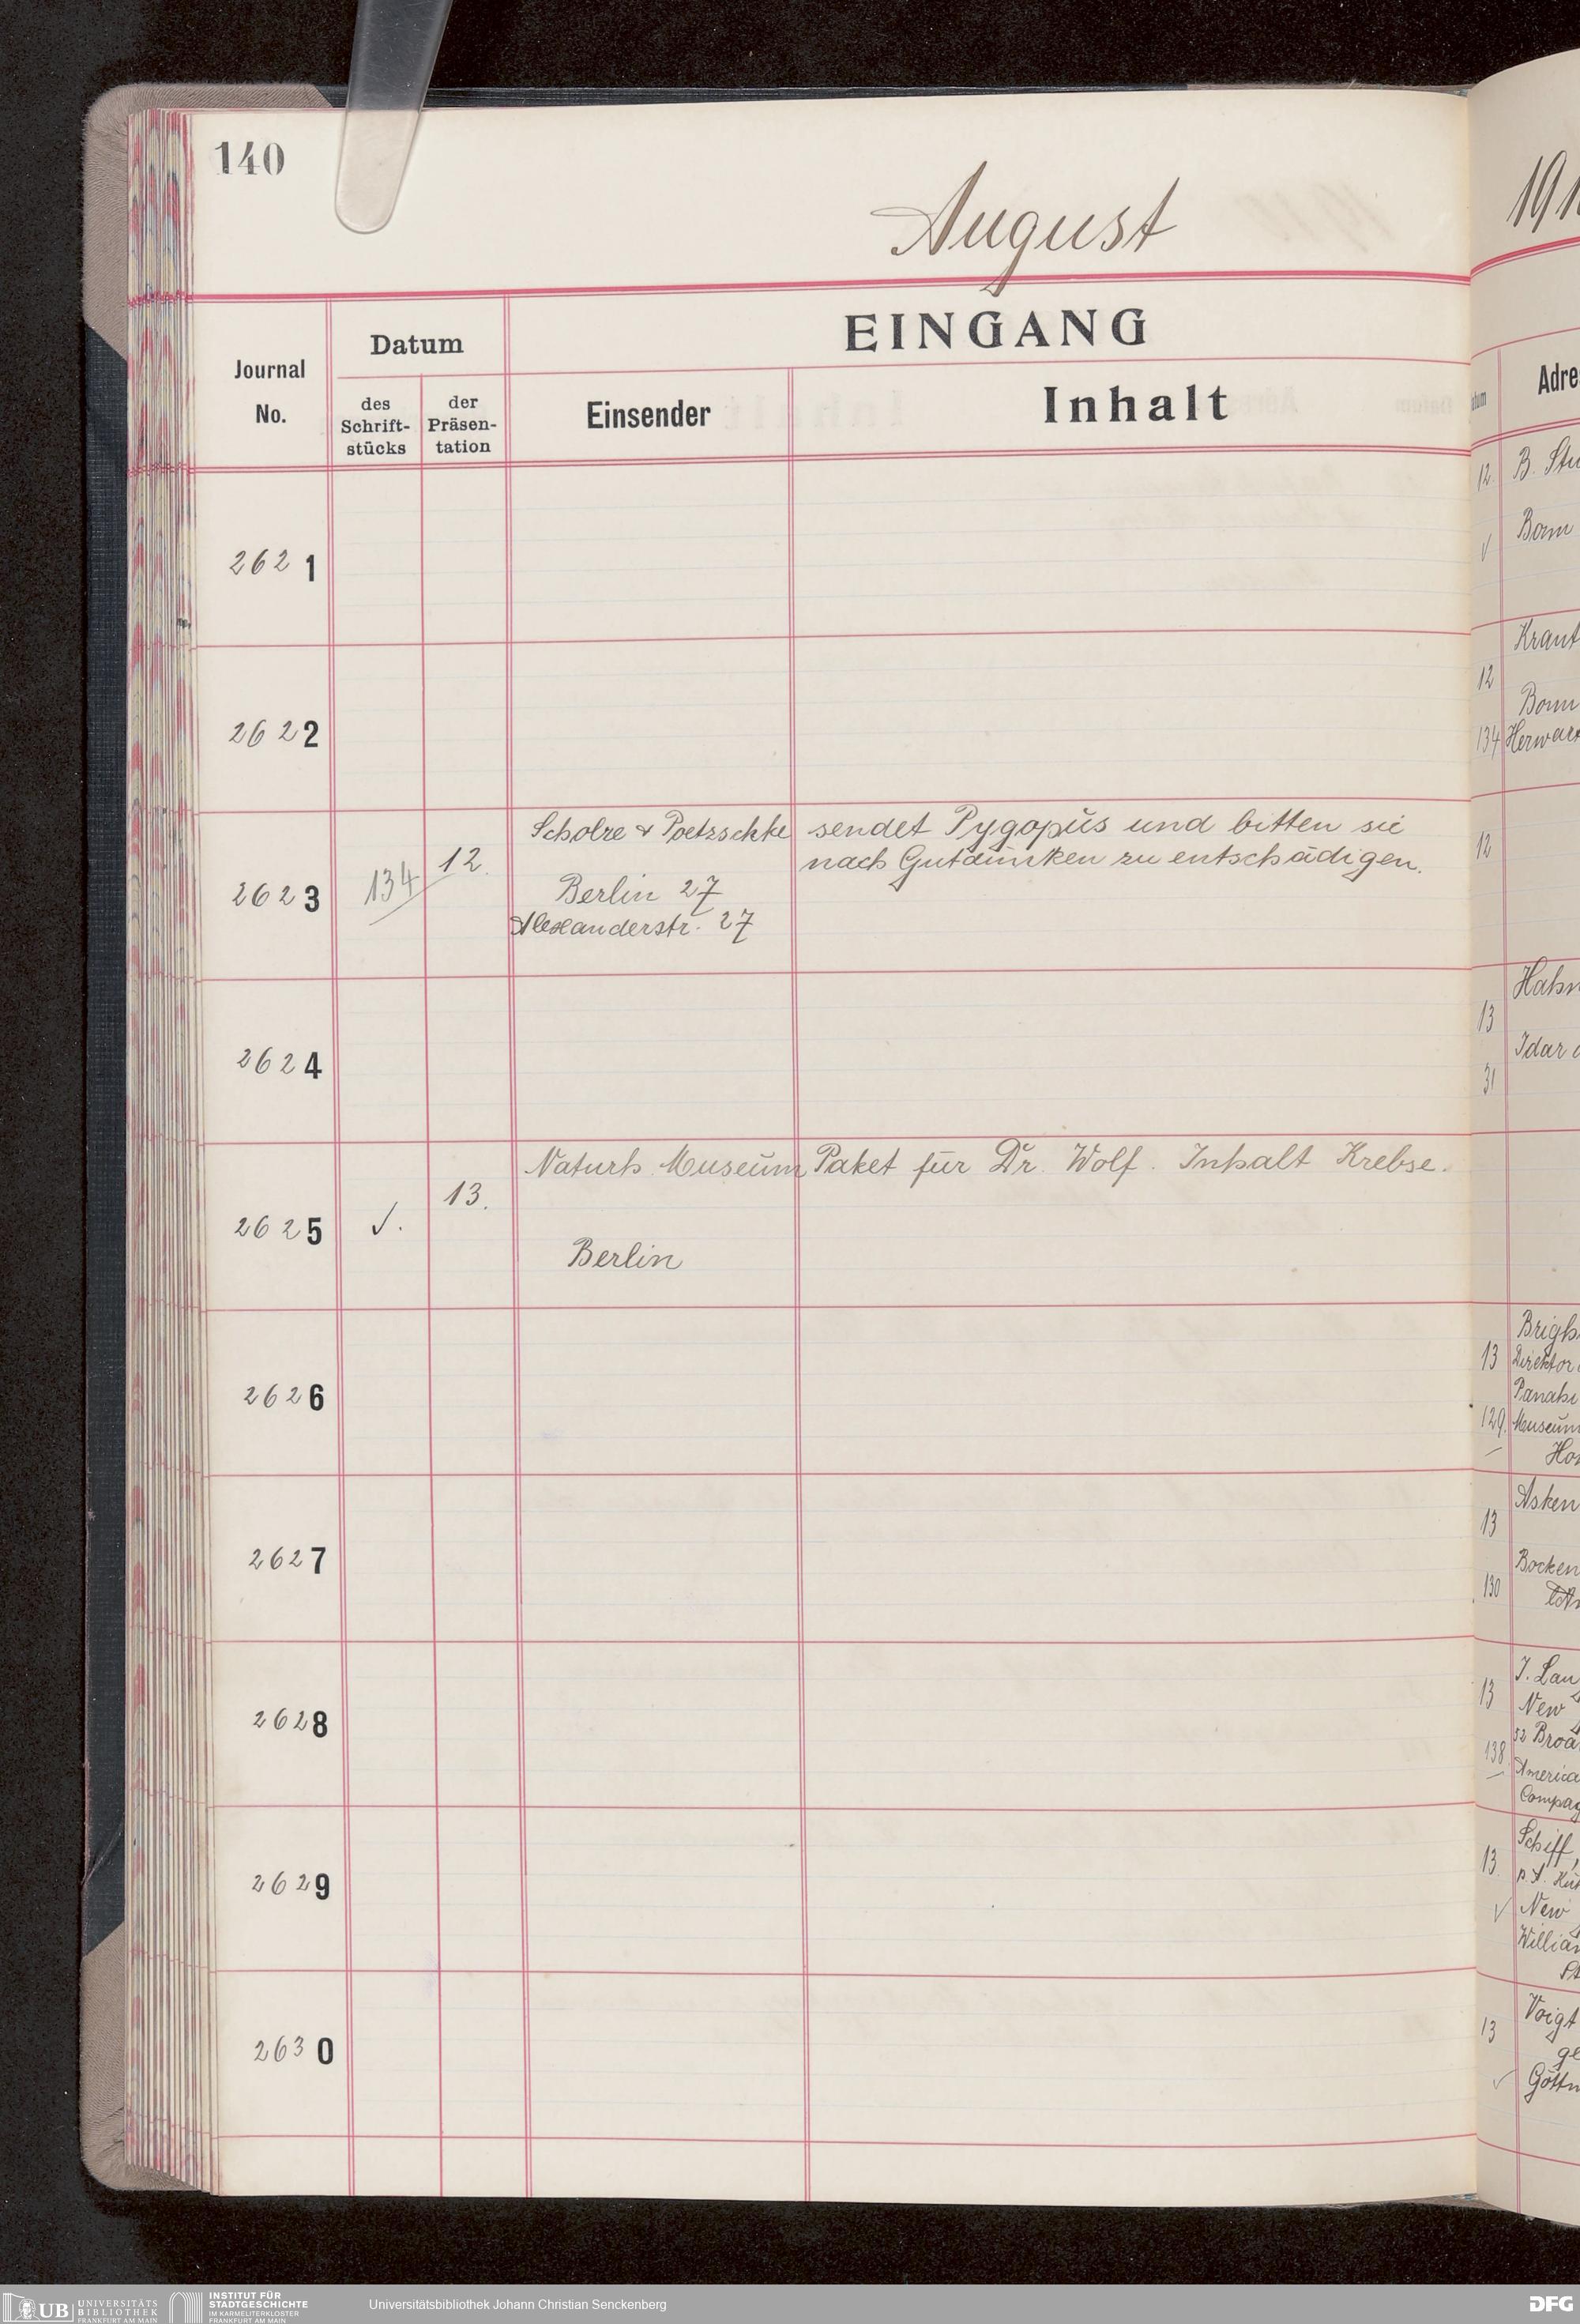 140
August
EINGANG
Journal No.
Datum
des Schrift-stücks
der Präsen-tation
Einsender
Inhalt
2621
2622
2623
134
12.
Scholze & Poetzschke
sendet Pygopus und bitten sie
nach Gutdünken zu entschädigen.
Berlin 27
Alexanderstr. 27
2624
2625
√.
13.
Naturh. Museum
Paket für Dr. Wolf. Inhalt Krebse.
Berlin
2626
2627
2628
2629
2630
191
Adre
12
B. Stu
Bonn
Kraut
12
Bonn
134
Herwart
12
Hahn
13
Idar
31
13
Direktor
129
Museum
13
Asken
Bocken
130
13
J. Lau
New
52 Broa
138
America
Compag
13
Schiff,
New
William
13
Voigt
UB UNIVERSITÄTS BIBLIOTHEK FRANKFURT AM MAIN
INSTITUT FÜR STADTGESCHICHTE IM KARMELITERKLOSTER FRANKFURT AM MAIN
Universitätsbibliothek Johann Christian Senckenberg
DFG